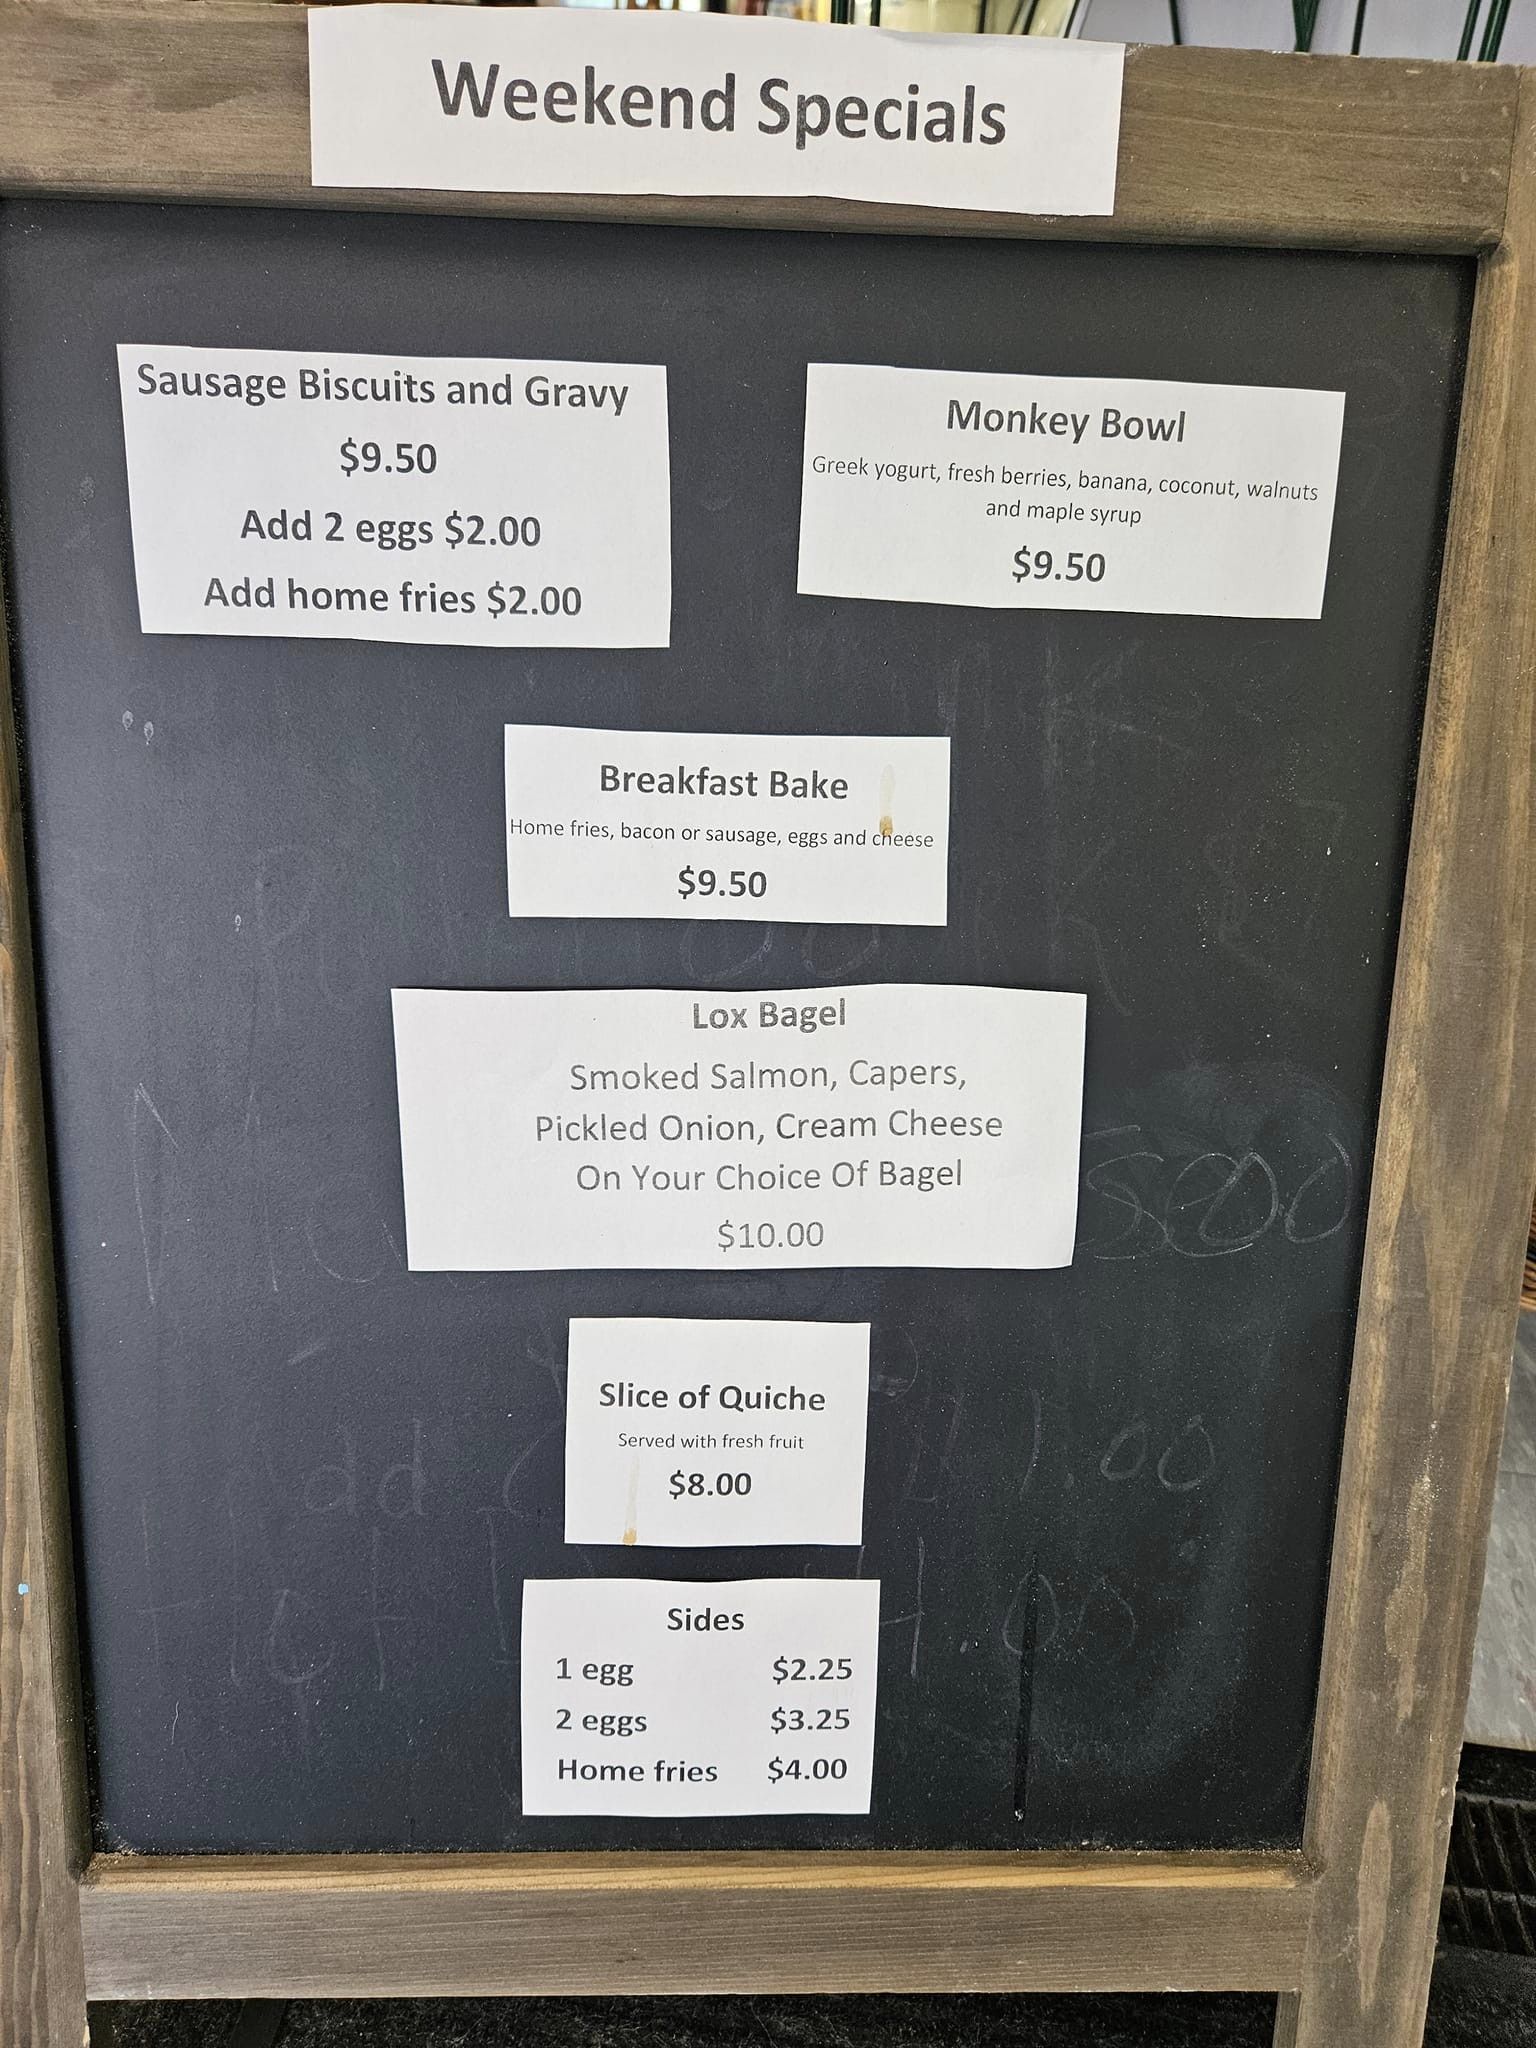 Weekend Specials
Sausage Biscuits and Gravy
$9.50
Add 2 eggs $2.00
Add home fries $2.00
Monkey Bowl
Greek yogurt, fresh berries, banana, coconut, walnuts
and maple syrup
$9.50
Breakfast Bake
Home fries, bacon or sausage, eggs and cheese
$9.50
Lox Bagel
Smoked Salmon, Capers,
Pickled Onion, Cream Cheese
On Your Choice Of Bagel
$10.00
Slice of Quiche
Served with fresh fruit
$8.00
Sides
1 egg $2.25
2 eggs $3.25
Home fries $4.00